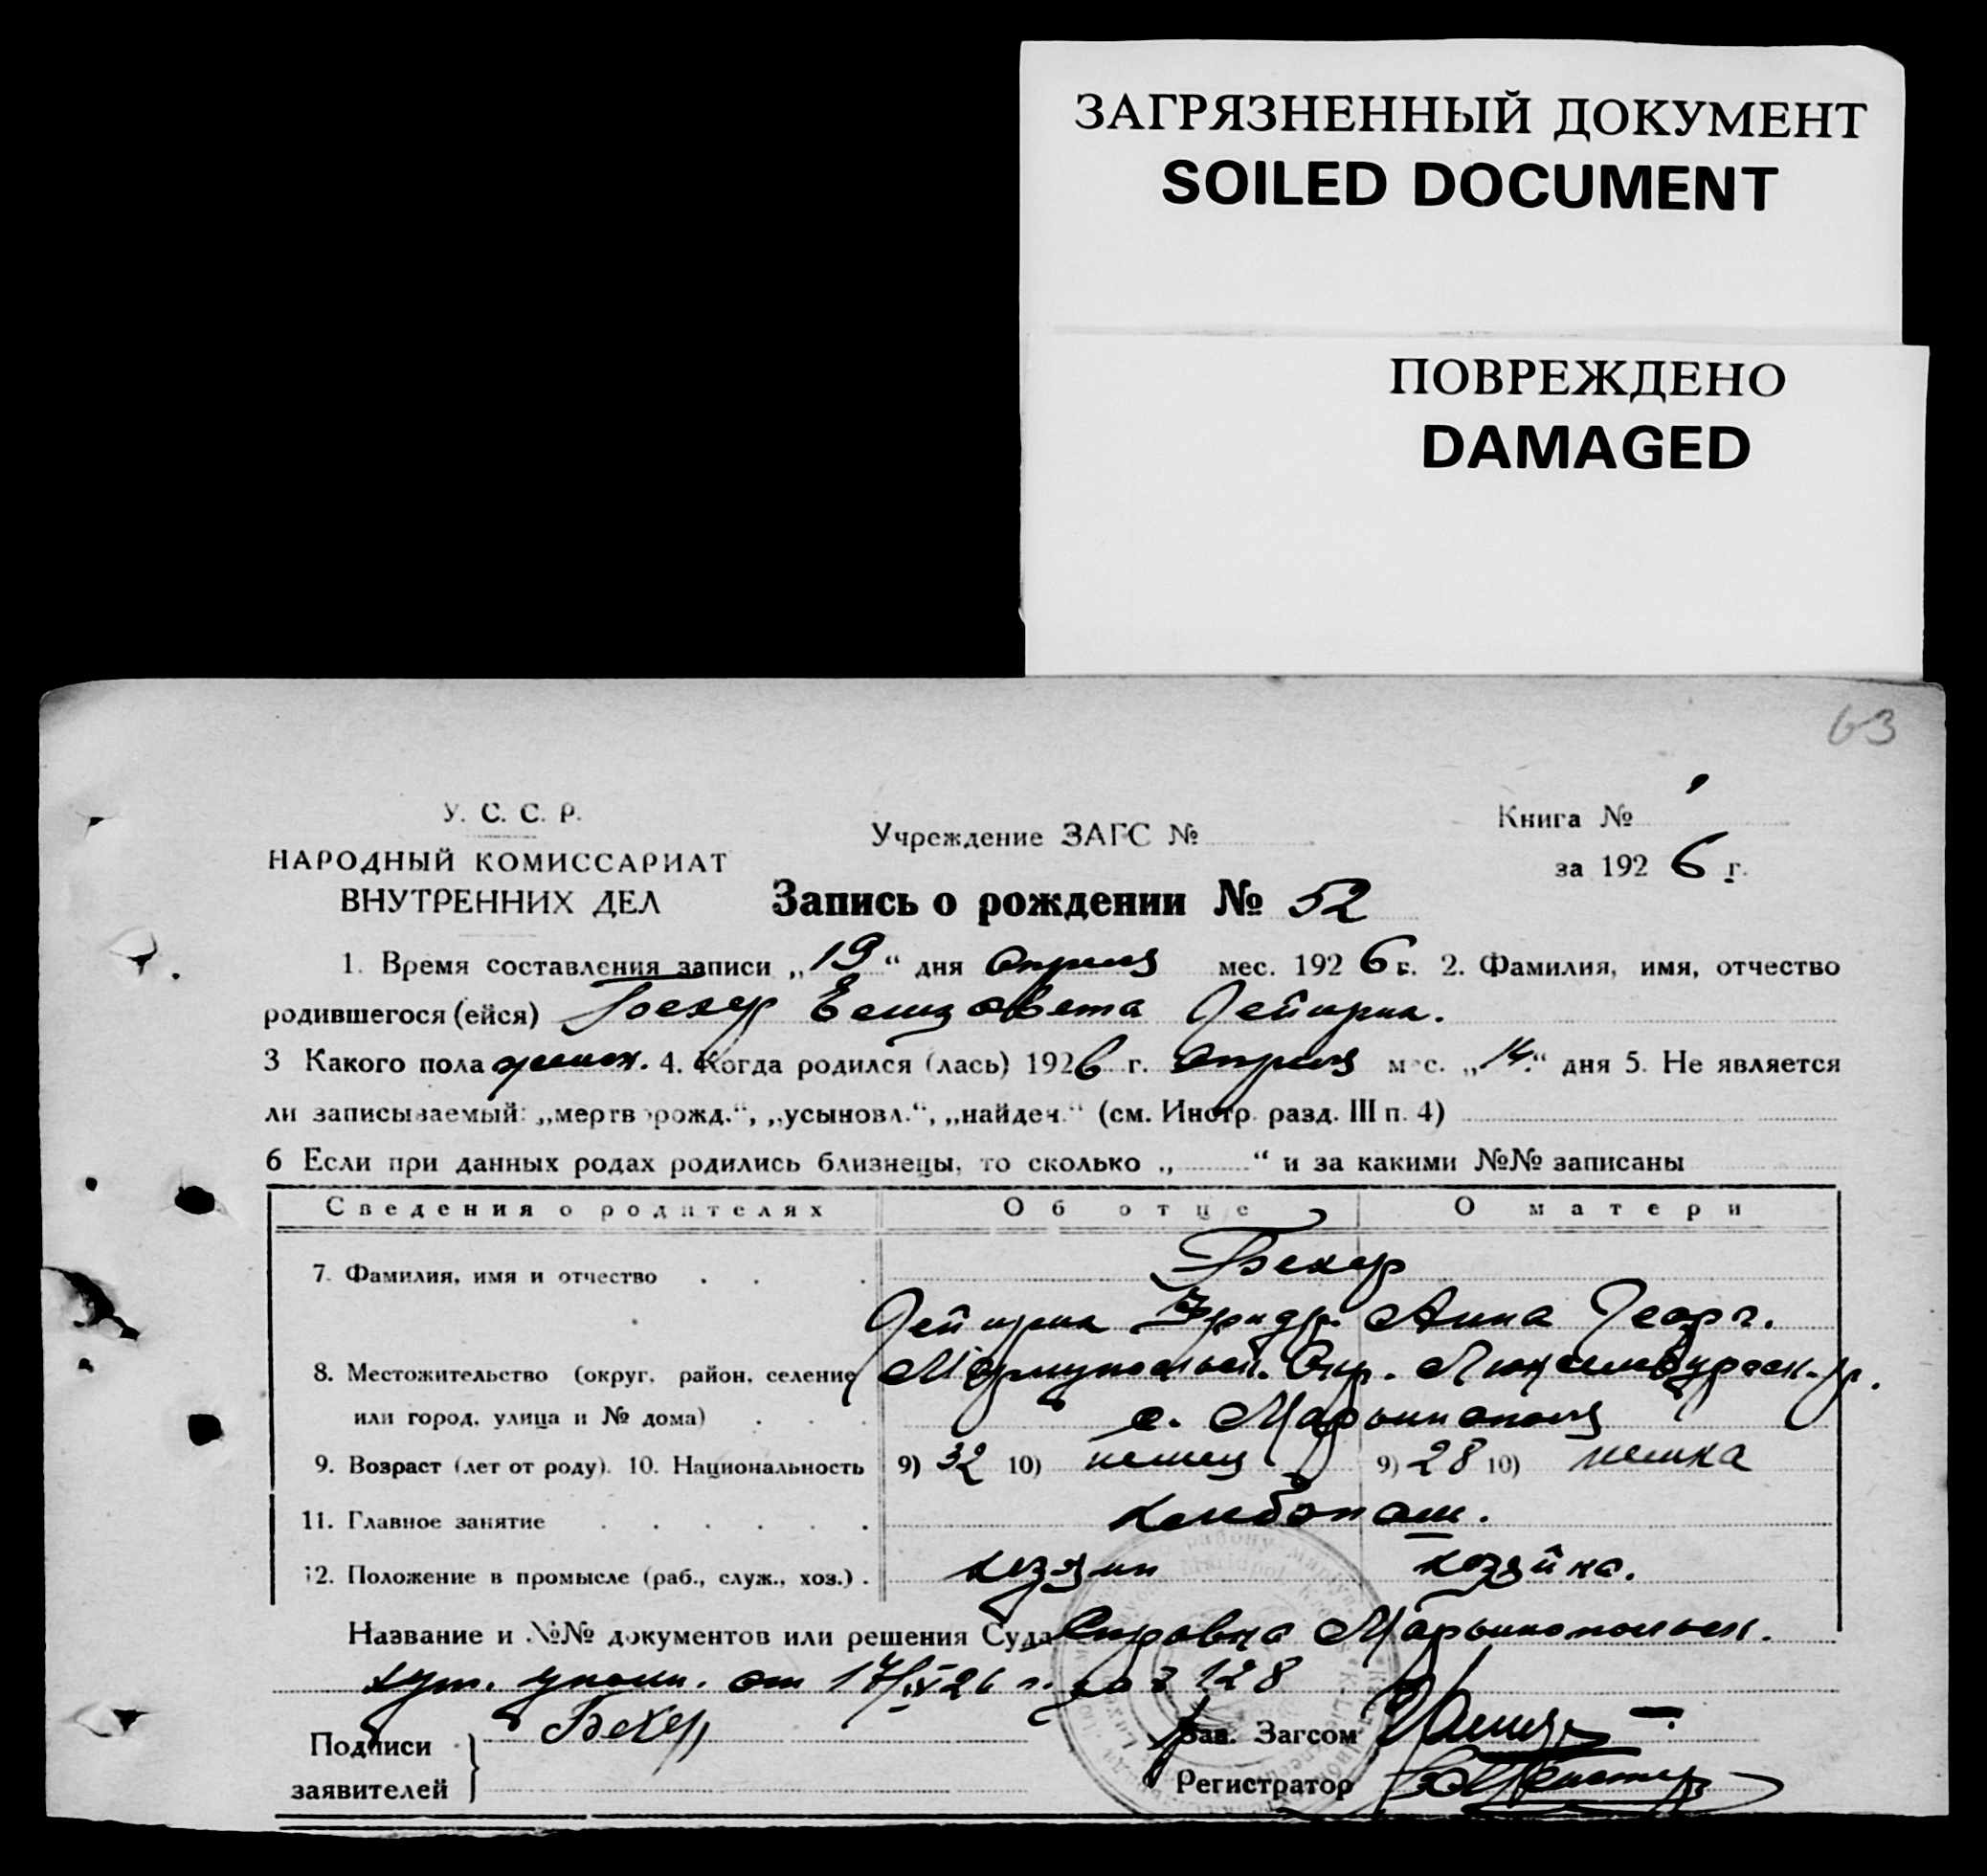 ЗАГРЯЗНЕННЫЙ ДОКУМЕНТ
SOILED DOCUMENT
ПОВРЕЖДЕНО
DAMAGED
63
У. С. С. Р.
НАРОДНЫЙ КОМИССАРИАТ
ВНУТРЕННИХ ДЕЛ
Учреждение ЗАГС №
Книга № 1
за 1926 г.
Запись о рождении № 52
1. Время составления записи „19“ дня апреля мес. 1926 г. 2. Фамилия, имя, отчество
родившегося (ейся) Бехер Елизавета Гейнрих.
3 Какого пола женск. 4. Когда родился (лась) 1926 г. апреля мес. „14.“ дня 5. Не является
ли записываемый: „мертворожд.“, „усыновл.“, „найден.“ (см. Инстр. разд. III п. 4)
6 Если при данных родах родились близнецы, то сколько „ “ и за какими №№ записаны
Сведения о родителях Об отце О матери
7. Фамилия, имя и отчество Бехер
Гейнрих Фридр. Анна Георг.
8. Местожительство (округ, район, селение Мариупольск. Окр. Люксембургск. р.
или город, улица и № дома) с. Марьинополь
9. Возраст (лет от роду). 10. Национальность 9) 32 10) немец 9) 28 10) немка
11. Главное занятие хлебопаш.
12. Положение в промысле (раб., служ., хоз.). хозяин хозяйка.
Название и №№ документов или решения Суда Справка Марьинопольск.
хут. уполн. от 17/IV 26 г. за № 128
Подписи заявителей Бехер
Зав. Загсом
Регистратор